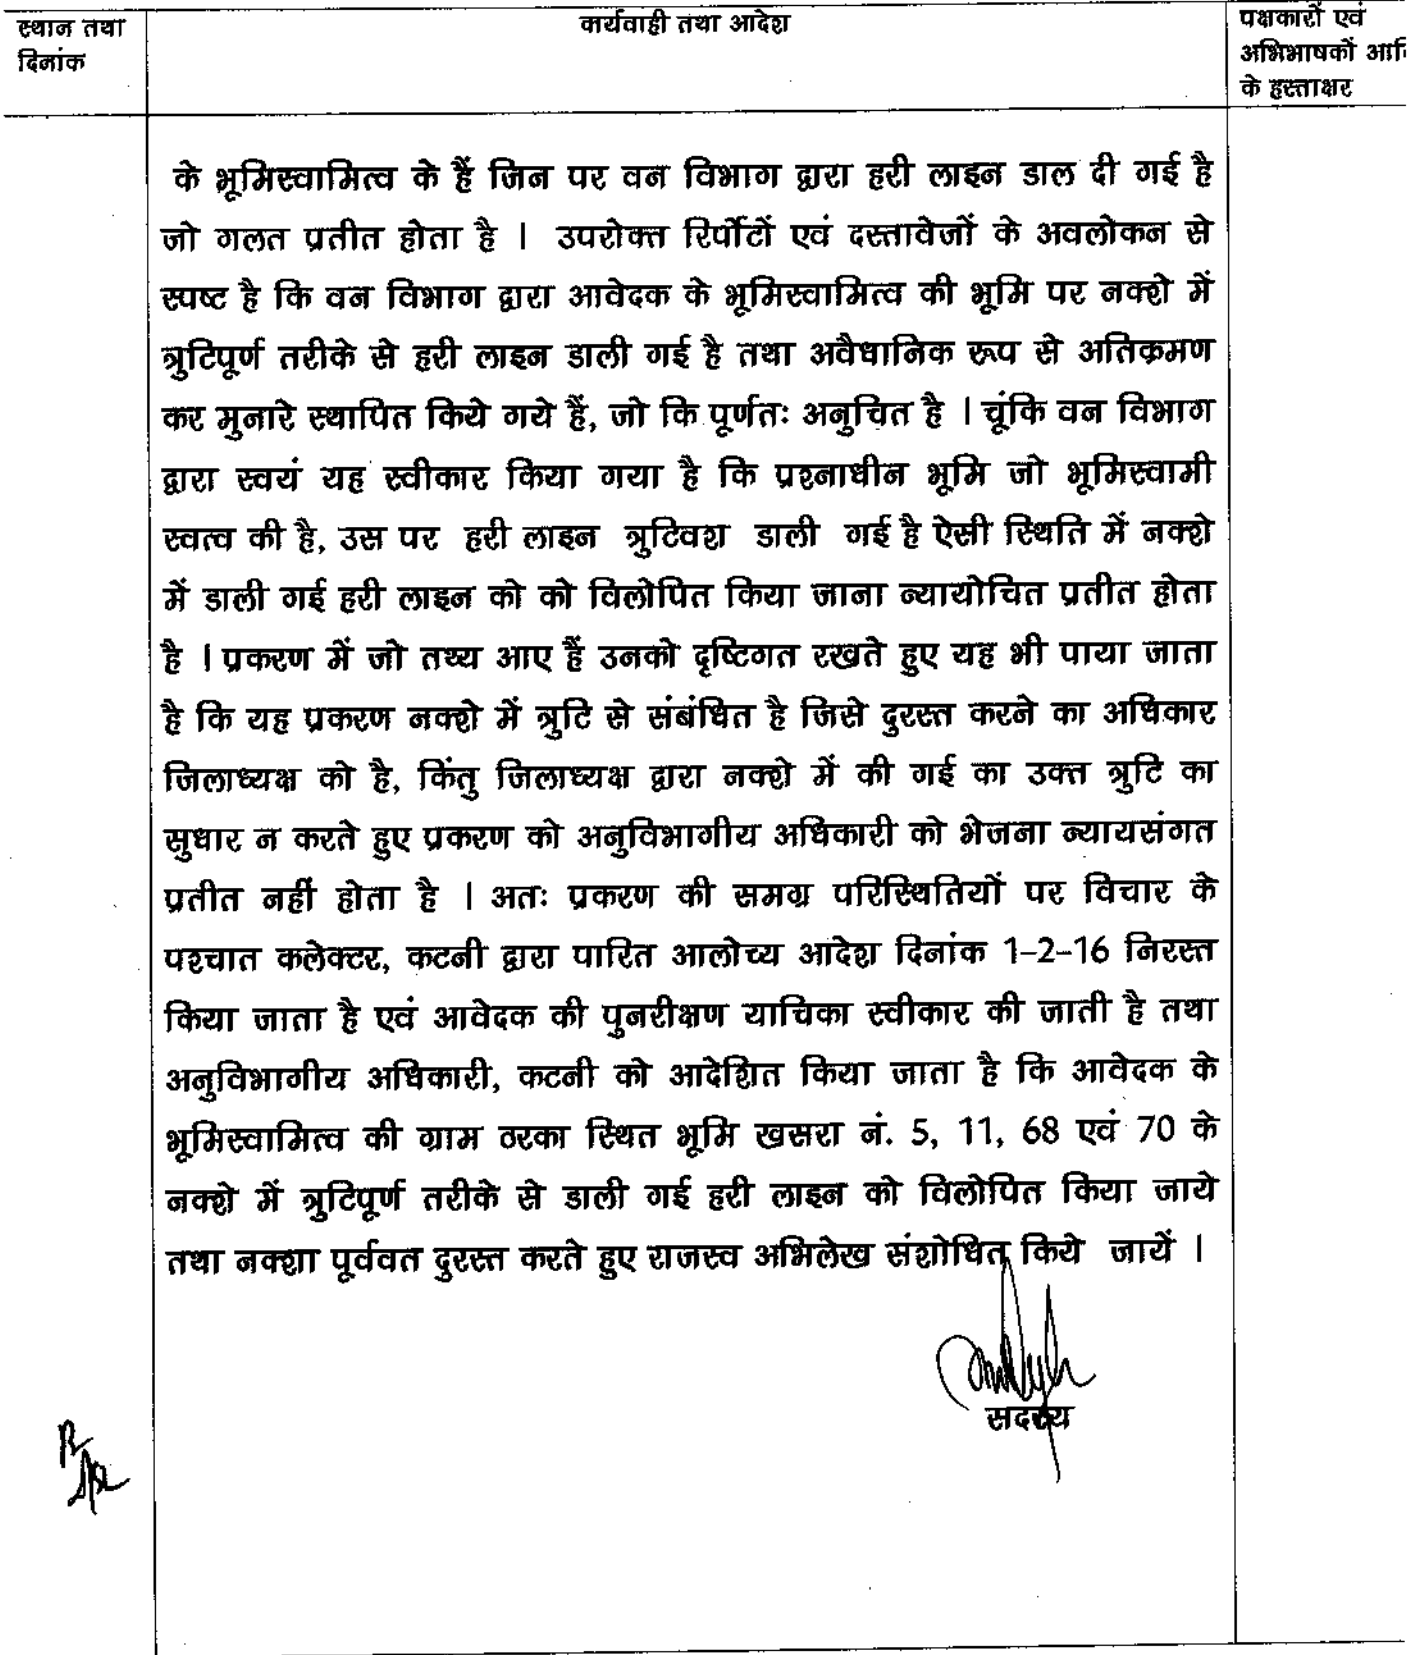 स्थान तथा
दिनांक
कार्यवाही तथा आदेश
पक्षकारों एवं
अभिभाषकों
के हस्ताक्षर
के भूमिस्वामित्व के हैं जिन पर वन विभाग द्वारा हरी लाइन डाल दी गई है
जो गलत प्रतीत होता है । उपरोक्त रिर्पोटों एवं दस्तावेजों के अवलोकन से
स्पष्ट है कि वन विभाग द्वारा आवेदक के भूमिस्वामित्व की भूमि पर नक्शे में
त्रुटिपूर्ण तरीके से हरी लाइन डाली गई है तथा अवैधानिक रूप से अतिक्रमण
कर मुनारे स्थापित किये गये हैं, जो कि पूर्णतः अनुचित है । चूंकि वन विभाग
द्वारा स्वयं यह स्वीकार किया गया है कि प्रश्नाधीन भूमि जो भूमिस्वामी
स्वत्व की है, उस पर हरी लाइन त्रुटिवश डाली गई है ऐसी स्थिति में नक्शे
में डाली गई हरी लाइन को को विलोपित किया जाना न्यायोचित प्रतीत होता
है । प्रकरण में जो तथ्य आए हैं उनको दृष्टिगत रखते हुए यह भी पाया जाता
है कि यह प्रकरण नक्शे में त्रुटि से संबंधित है जिसे दुरस्त करने का अधिकार
जिलाध्यक्ष को है, किंतु जिलाध्यक्ष द्वारा नक्शे में की गई का उक्त त्रुटि का
सुधार न करते हुए प्रकरण को अनुविभागीय अधिकारी को भेजना न्यायसंगत
प्रतीत नहीं होता है । अतः प्रकरण की समग्र परिस्थितियों पर विचार के
पश्चात कलेक्टर, कटनी द्वारा पारित आलोच्य आदेश दिनांक 1-2-16 निरस्त
किया जाता है एवं आवेदक की पुनरीक्षण याचिका स्वीकार की जाती है तथा
अनुविभागीय अधिकारी, कटनी को आदेशित किया जाता है कि आवेदक के
भूमिस्वामित्व की ग्राम ठरका स्थित भूमि खसरा नं. 5, 11, 68 एवं 70 के
नक्शे में त्रुटिपूर्ण तरीके से डाली गई हरी लाइन को विलोपित किया जाये
तथा नक्शा पूर्ववत दुरस्त करते हुए राजस्व अभिलेख संशोधित किये जायें ।
सदस्य